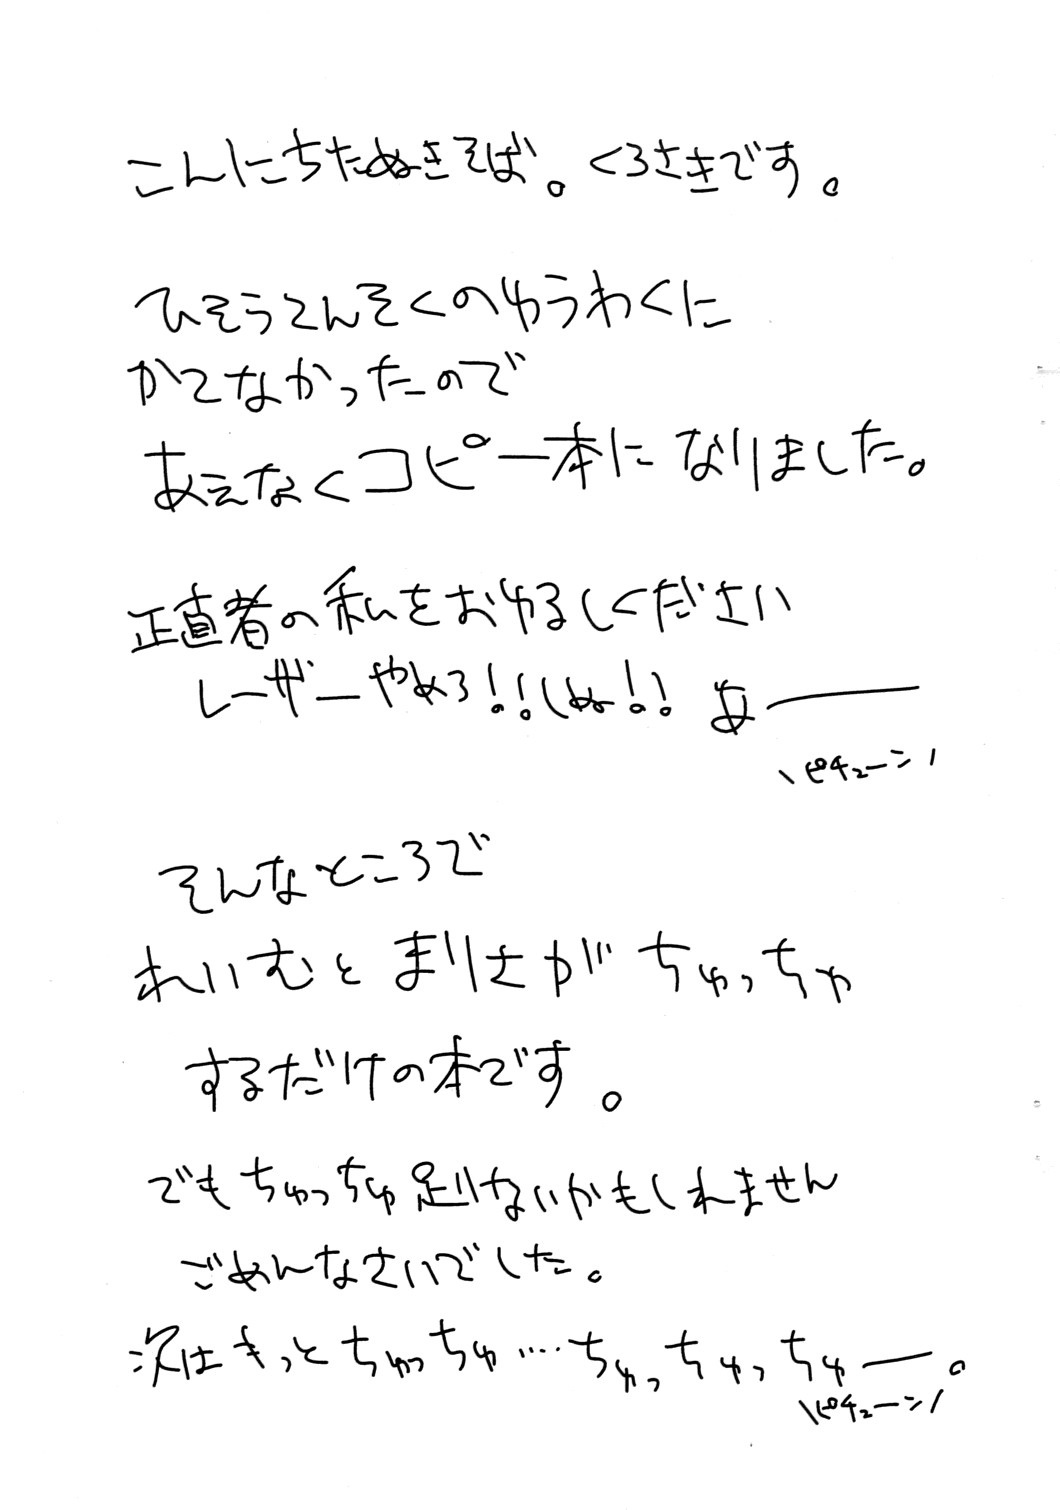 こんにちたぬきそば。くろさきです。
ひそうてんそくのゆうわくに
かてなかったので
あえなくコピー本になりました。
正直者の私をおゆるしください
レーザーやめろ!!しぬ!!あ――
\ピチューン/
そんなところで
れいむとまりさがちゅっちゅ
するだけの本です。
でもちゅっちゅ足りないかもしれません
ごめんなさいでした。
次はもっとちゅっちゅ‥‥ちゅっちゅっちゅ――。
\ピチューン/